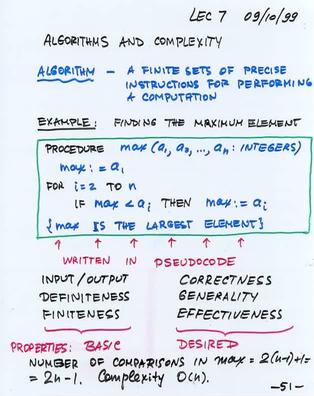 LEC 7 09/10/99
ALGORITHMS AND COMPLEXITY
ALGORITHM - A FINITE SETS OF PRECISE
INSTRUCTIONS FOR PERFORMING
A COMPUTATION
EXAMPLE: FINDING THE MAXIMUM ELEMENT
PROCEDURE max (a₁, a₂, ..., aₙ: INTEGERS)
max := a₁
FOR i=2 TO n
IF max < aᵢ THEN max := aᵢ
{max IS THE LARGEST ELEMENT}
↑ ↑ ↑ ↑ ↑ ↑
WRITTEN IN PSEUDOCODE
INPUT/OUTPUT CORRECTNESS
DEFINITENESS GENERALITY
FINITENESS EFFECTIVENESS
PROPERTIES: BASIC DESIRED
NUMBER OF COMPARISONS IN max = 2(n-1)+1=
= 2n-1. Complexity O(n).
-51-